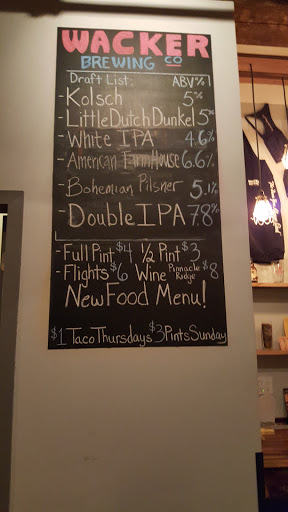 WACKER
BREWING CO
Draft List: ABV%
-Kolsch 5%
-Little Dutch Dunkel 5%
-White IPA 4.6%
-American FarmHouse 6.6%
-Bohemian Pilsner 5.1%
-Double IPA 7.8%
-Full Pint $4 1/2 Pint $3
-Flights $6 Wine Pinnacle Ridge $8
New Food Menu!
$1 Taco Thursdays $3 Pints Sunday